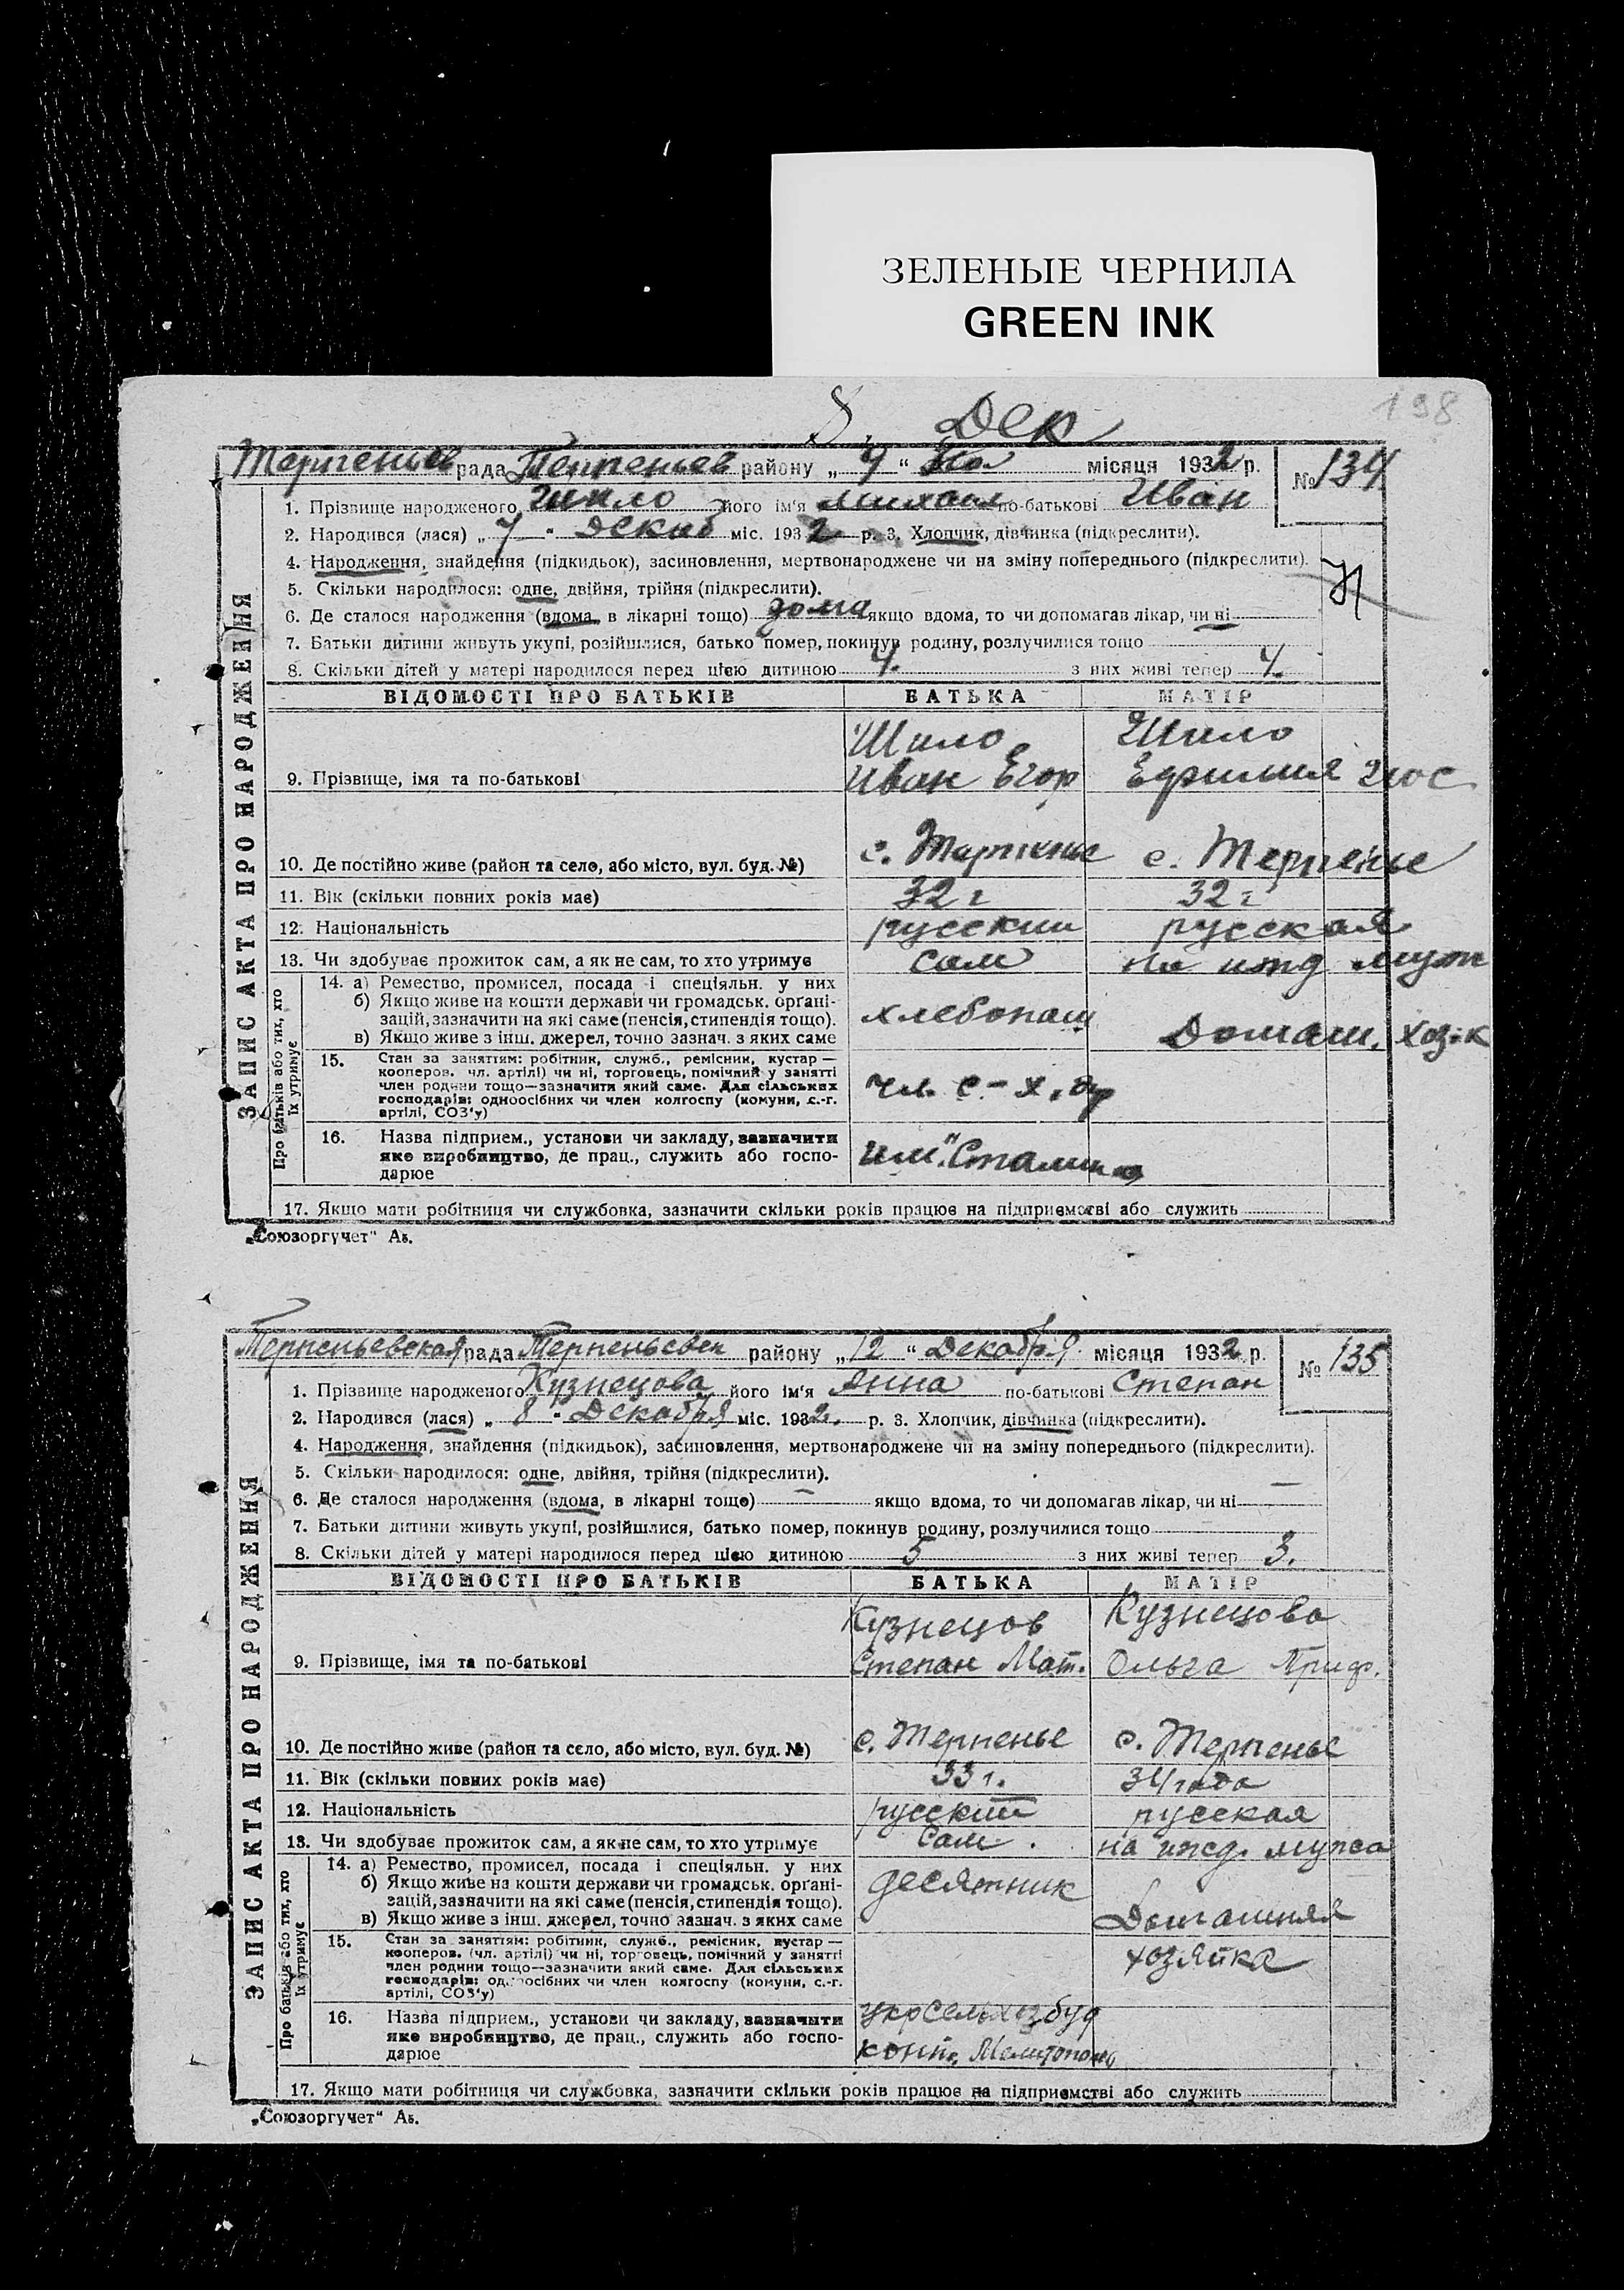 ЗЕЛЕНЫЕ ЧЕРНИЛА
GREEN INK
198
Дек
рада район у „ “ місяця 1932 р. № 134
1. Прізвище народженого Шило його ім'я Михаил по-батькові Иван
2. Народився (лася) „7“ Декаб міс. 1932 р. 3. Хлопчик, дівчинка (підкреслити).
4. Народження, знайдення (підкидьок), засиновлення, мертвонароджене чи на зміну попереднього (підкреслити).
5. Скільки народилося: одне, двійня, трійня (підкреслити).
6. Де сталося народження (вдома, в лікарні тощо) дома якщо вдома, то чи допомагав лікар, чи ні
7. Батьки дитини живуть укупі, розійшлися, батько помер, покинув родину, розлучилися тощо
8. Скільки дітей у матері народилося перед цією дитиною 4. з них живі тепер 4.
ЗАПИС АКТА ПРО НАРОДЖЕННЯ
ВІДОМОСТІ ПРО БАТЬКІВ БАТЬКА МАТІР
Шило Шило
9. Прізвище, імя та по-батькові Иван Егор
10. Де постійно живе (район та село, або місто, вул. буд. №) с. Терпенье с. Терпенье
11. Вік (скільки повних років має) 32 г 32 г
12. Національність русский русская
13. Чи здобуває прожиток сам, а як не сам, то хто утримує сам на ижд муж
Про батьків або тих, хто їх утримує
14. а) Ремество, промисел, посада і спеціяльн. у них
б) Якщо живе на кошти держави чи громадськ. орґані-
зацій, зазначити на які саме (пенсія, стипендія тощо). хлебопаш
в) Якщо живе з інш. джерел, точно зазнач. з яких саме Домаш. хоз-к
15. Стан за заняттям: робітник, служб., ремісник, кустар —
кооперов. чл. артілі) чи ні, торговець, помічний у занятті
член родини тощо—зазначити який саме. Для сільських чл. с-х. ар
господарів: одноосібних чи член колгоспу (комуни, с.-г.
артілі, СОЗ'у)
16. Назва підприєм., установи чи закладу, зазначити
яке виробництво, де прац., служить або госпо- им. „Сталина
дарює
17. Якщо мати робітниця чи службовка, зазначити скільки років працює на підприємстві або служить
„Союзоргучет“ Аб.
Терпеньевская рада Терпеньевск району „12“ Декабря місяця 1932 р. № 135
1. Прізвище народженого Кузнецова його ім'я Анна по-батькові Степан
2. Народився (лася) „8“ Декабря міс. 1932. р. 3. Хлопчик, дівчинка (підкреслити).
4. Народження, знайдення (підкидьок), засиновлення, мертвонароджене чи на зміну попереднього (підкреслити).
5. Скільки народилося: одне, двійня, трійня (підкреслити).
6. Де сталося народження (вдома, в лікарні тощо) — якщо вдома, то чи допомагав лікар, чи ні —
7. Батьки дитини живуть укупі, розійшлися, батько помер, покинув родину, розлучилися тощо
8. Скільки дітей у матері народилося перед цією дитиною 5 з них живі тепер 3.
ЗАПИС АКТА ПРО НАРОДЖЕННЯ
ВІДОМОСТІ ПРО БАТЬКІВ БАТЬКА МАТІР
Кузнецов Кузнецова
9. Прізвище, імя та по-батькові Степан Мат. Ольга
10. Де постійно живе (район та село, або місто, вул. буд. №) с. Терпенье с. Терпенье
11. Вік (скільки повних років має) 33 г. 34 года
12. Національність русский русская
13. Чи здобуває прожиток сам, а як не сам, то хто утримує Сам. на ижд. мужа
Про батьків або тих, хто їх утримує
14. а) Ремество, промисел, посада і спеціяльн. у них
б) Якщо живе на кошти держави чи громадськ. орґані- десятник
зацій, зазначити на які саме (пенсія, стипендія тощо).
в) Якщо живе з інш. джерел, точно зазнач. з яких саме Домашняя
15. Стан за заняттям: робітник, служб., ремісник, кустар —
кооперов. (чл. артілі) чи ні, торговець, помічний у занятті хозяйка
член родини тощо—зазначити який саме. Для сільських
господарів: одноосібних чи член колгоспу (комуни, с.-г.
артілі, СОЗ'у)
16. Назва підприєм., установи чи закладу, зазначити укрсельхозбуд
яке виробництво, де прац., служить або госпо-
дарює конт. Мелитополь
17. Якщо мати робітниця чи службовка, зазначити скільки років працює на підприємстві або служить
„Союзоргучет“ Аб.